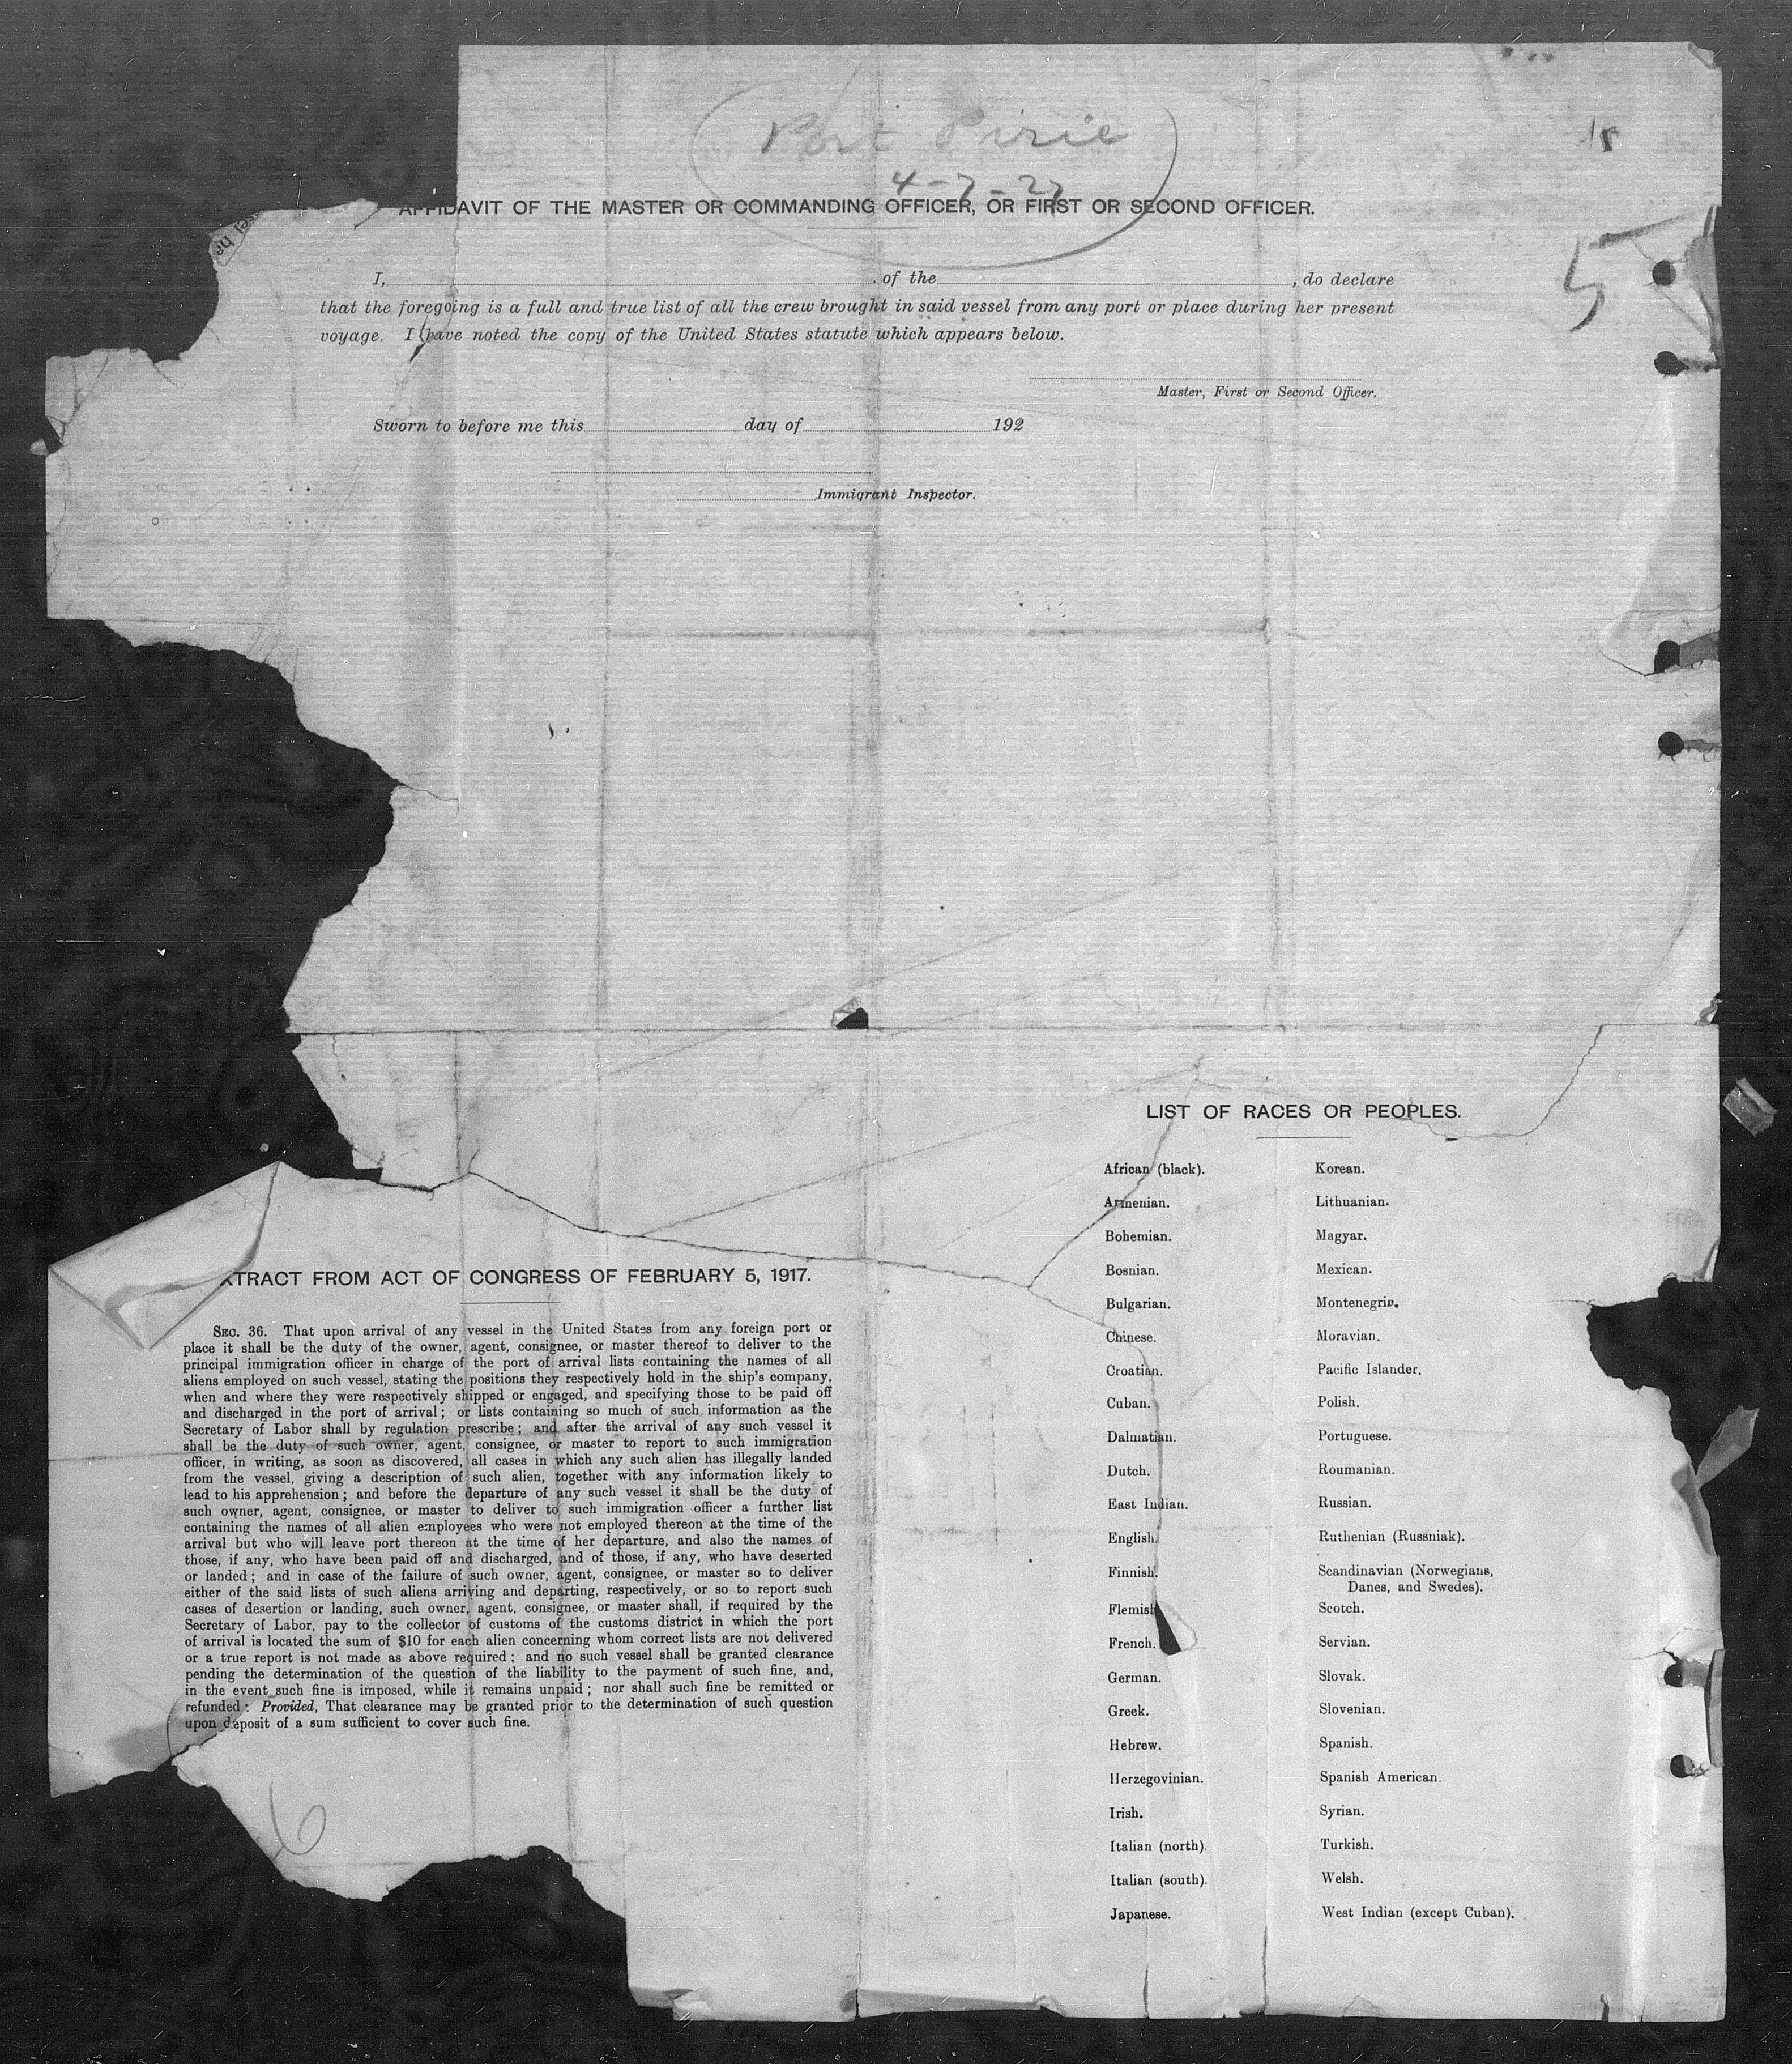 Port Pirie
4-7-27
AFFIDAVIT OF THE MASTER OR COMMANDING OFFICER, OR FIRST OR SECOND OFFICER.
5
I, of the , do declare
that the foregoing is a full and true list of all the crew brought in said vessel from any port or place during her present
voyage. I have noted the copy of the United States statute which appears below.
Master, First or Second Officer.
Sworn to before me this day of 192
Immigrant Inspector.
XTRACT FROM ACT OF CONGRESS OF FEBRUARY 5, 1917.
SEC. 36. That upon arrival of any vessel in the United States from any foreign port or
place it shall be the duty of the owner, agent, consignee, or master thereof to deliver to the
principal immigration officer in charge of the port of arrival lists containing the names of all
aliens employed on such vessel, stating the positions they respectively hold in the ship's company,
when and where they were respectively shipped or engaged, and specifying those to be paid off
and discharged in the port of arrival; or lists containing so much of such information as the
Secretary of Labor shall by regulation prescribe; and after the arrival of any such vessel it
shall be the duty of such owner, agent, consignee, or master to report to such immigration
officer, in writing, as soon as discovered, all cases in which any such alien has illegally landed
from the vessel, giving a description of such alien, together with any information likely to
lead to his apprehension; and before the departure of any such vessel it shall be the duty of
such owner, agent, consignee, or master to deliver to such immigration officer a further list
containing the names of all alien employees who were not employed thereon at the time of the
arrival but who will leave port thereon at the time of her departure, and also the names of
those, if any, who have been paid off and discharged, and of those, if any, who have deserted
or landed; and in case of the failure of such owner, agent, consignee, or master so to deliver
either of the said lists of such aliens arriving and departing, respectively, or so to report such
cases of desertion or landing, such owner, agent, consignee, or master shall, if required by the
Secretary of Labor, pay to the collector of customs of the customs district in which the port
of arrival is located the sum of $10 for each alien concerning whom correct lists are not delivered
or a true report is not made as above required; and no such vessel shall be granted clearance
pending the determination of the question of the liability to the payment of such fine, and,
in the event such fine is imposed, while it remains unpaid; nor shall such fine be remitted or
refunded: Provided, That clearance may be granted prior to the determination of such question
upon deposit of a sum sufficient to cover such fine.
6
LIST OF RACES OR PEOPLES.
African (black).
Armenian.
Bohemian.
Bosnian.
Bulgarian.
Chinese.
Croatian.
Cuban.
Dalmatian.
Dutch.
East Indian.
English.
Finnish.
Flemish
French.
German.
Greek.
Hebrew.
Herzegovinian.
Irish.
Italian (north).
Italian (south).
Japanese.
Korean.
Lithuanian.
Magyar.
Mexican.
Montenegrin.
Moravian.
Pacific Islander.
Polish.
Portuguese.
Roumanian.
Russian.
Ruthenian (Russniak).
Scandinavian (Norwegians,
Danes, and Swedes).
Scotch.
Servian.
Slovak.
Slovenian.
Spanish.
Spanish American.
Syrian.
Turkish.
Welsh.
West Indian (except Cuban).